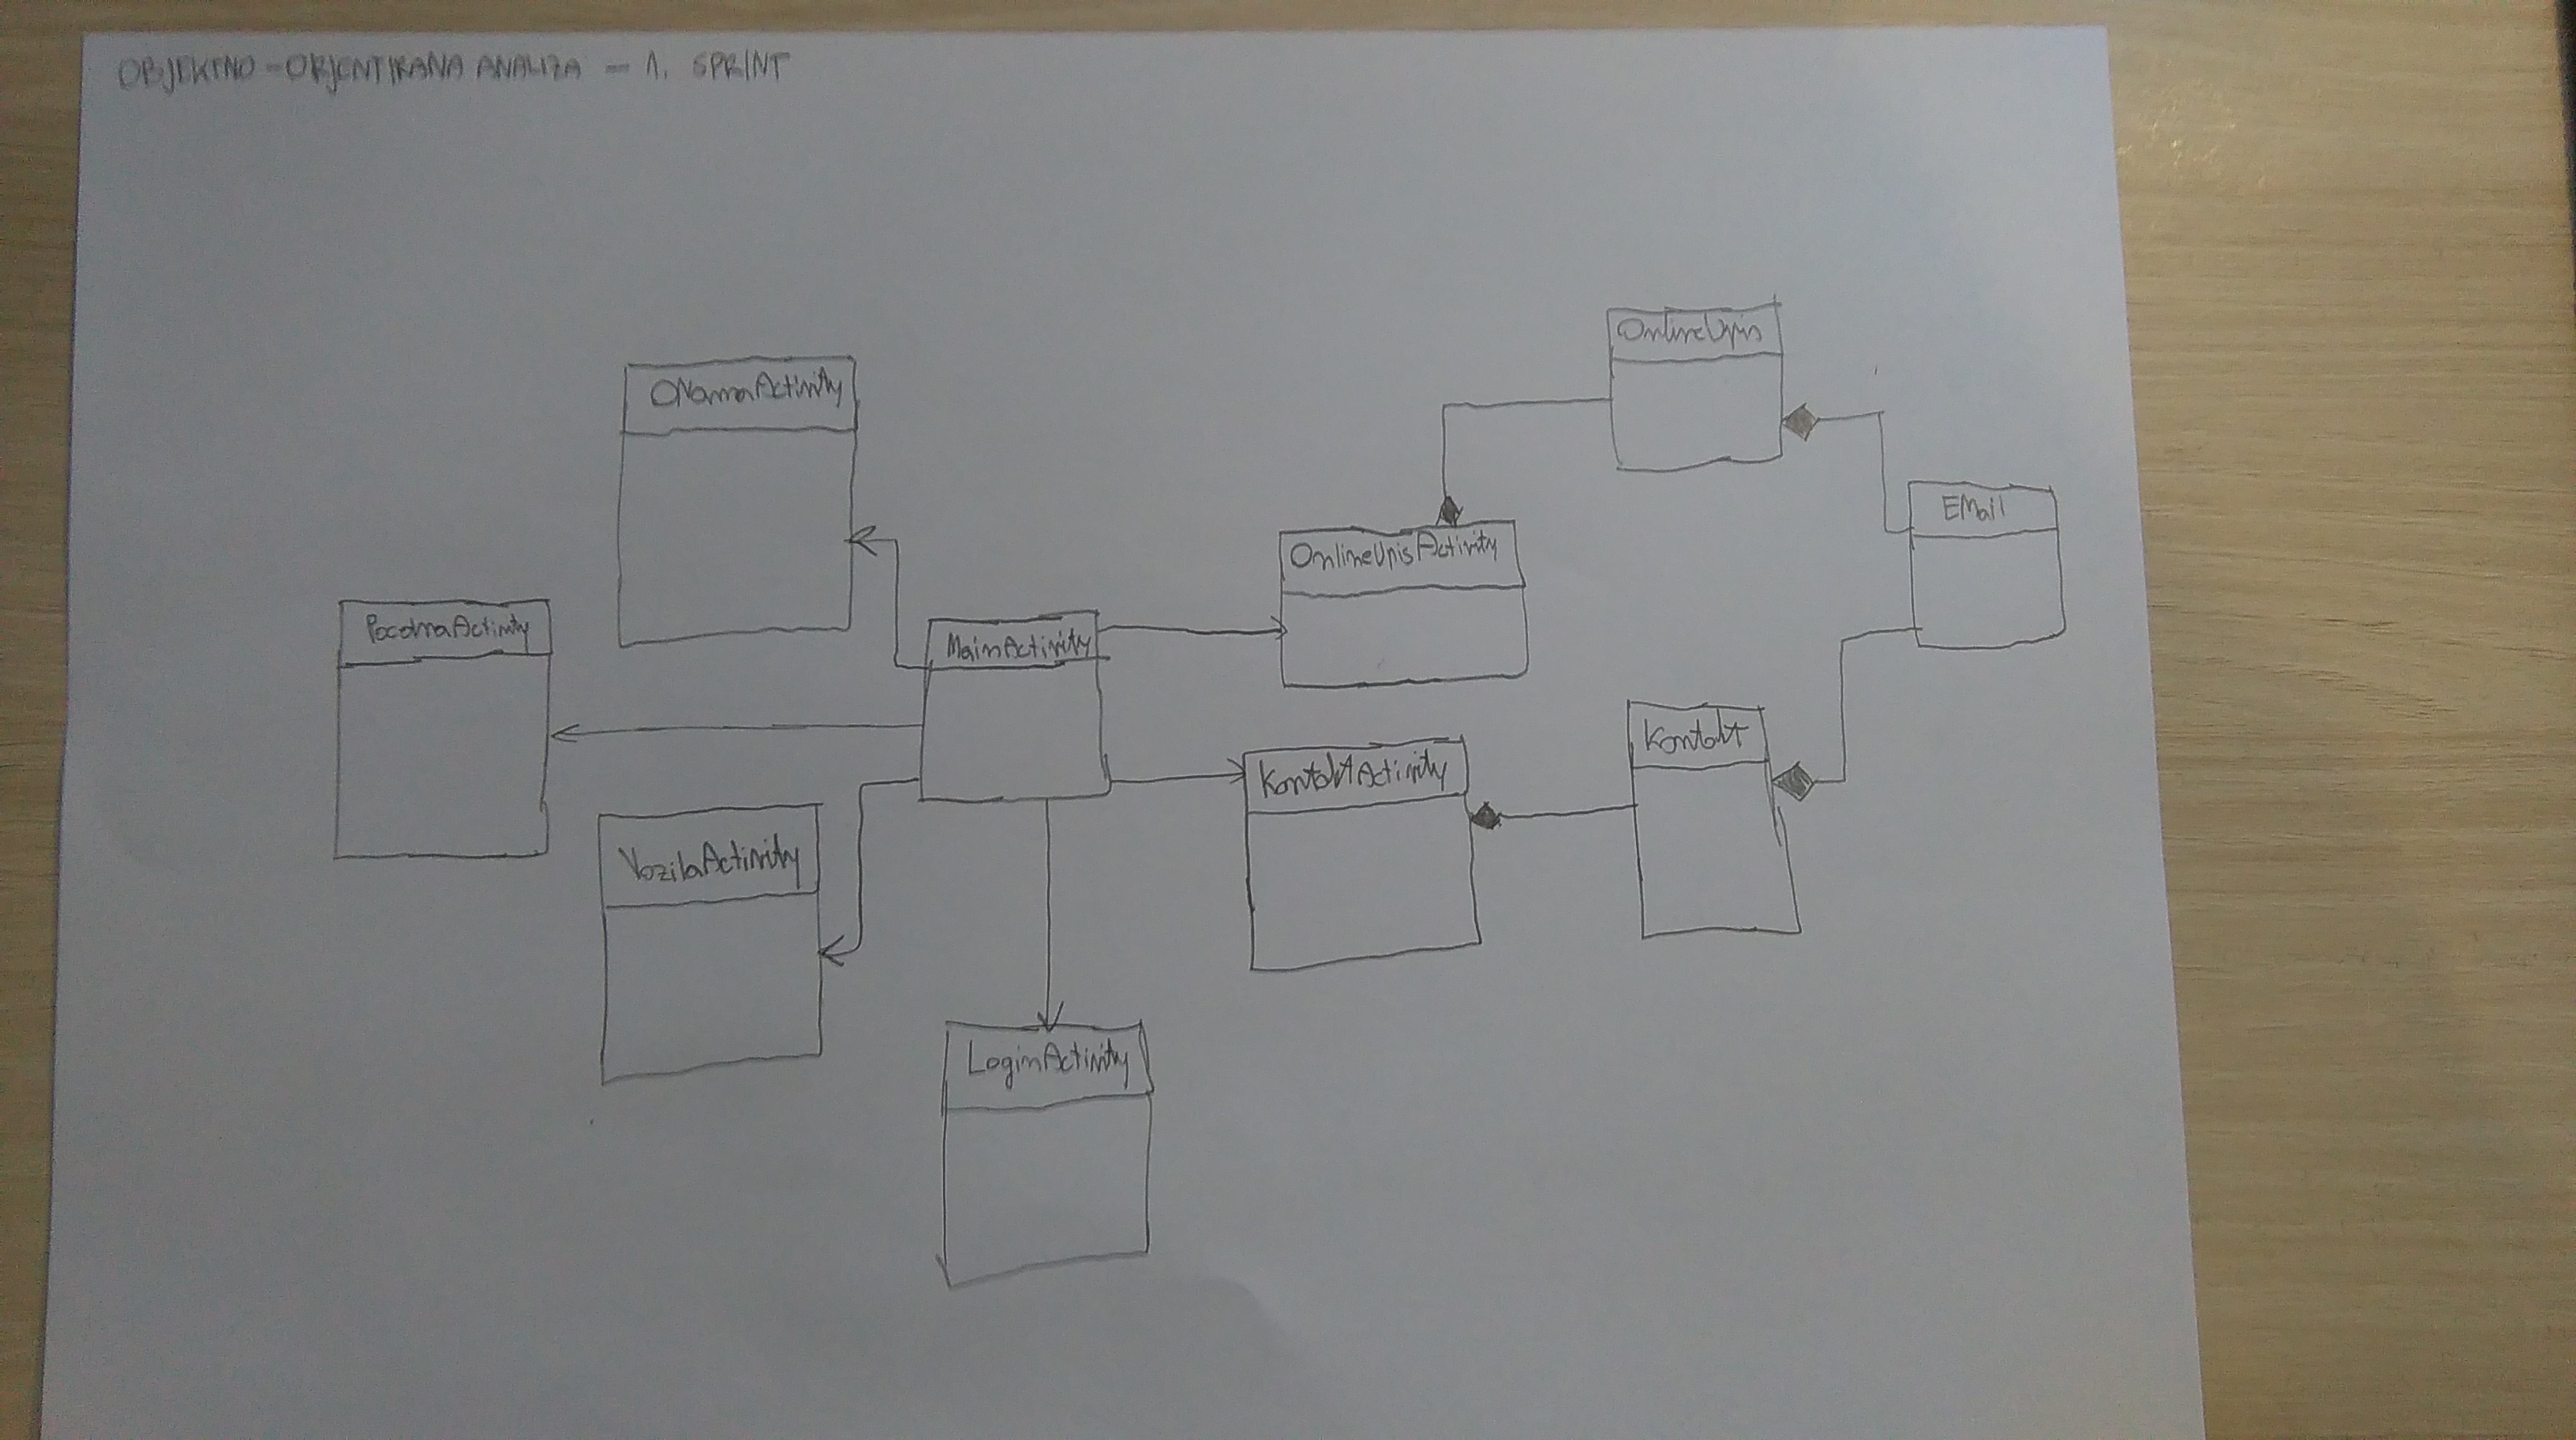 OBJEKTNO-ORJENTIRANA ANALIZA - 1. SPRINT
OnlineUpis
ONamaActivity
EMail
OnlineUpisActivity
PocetnaActivity
MainActivity
Kontakt
KontaktActivity
VozilaActivity
LoginActivity